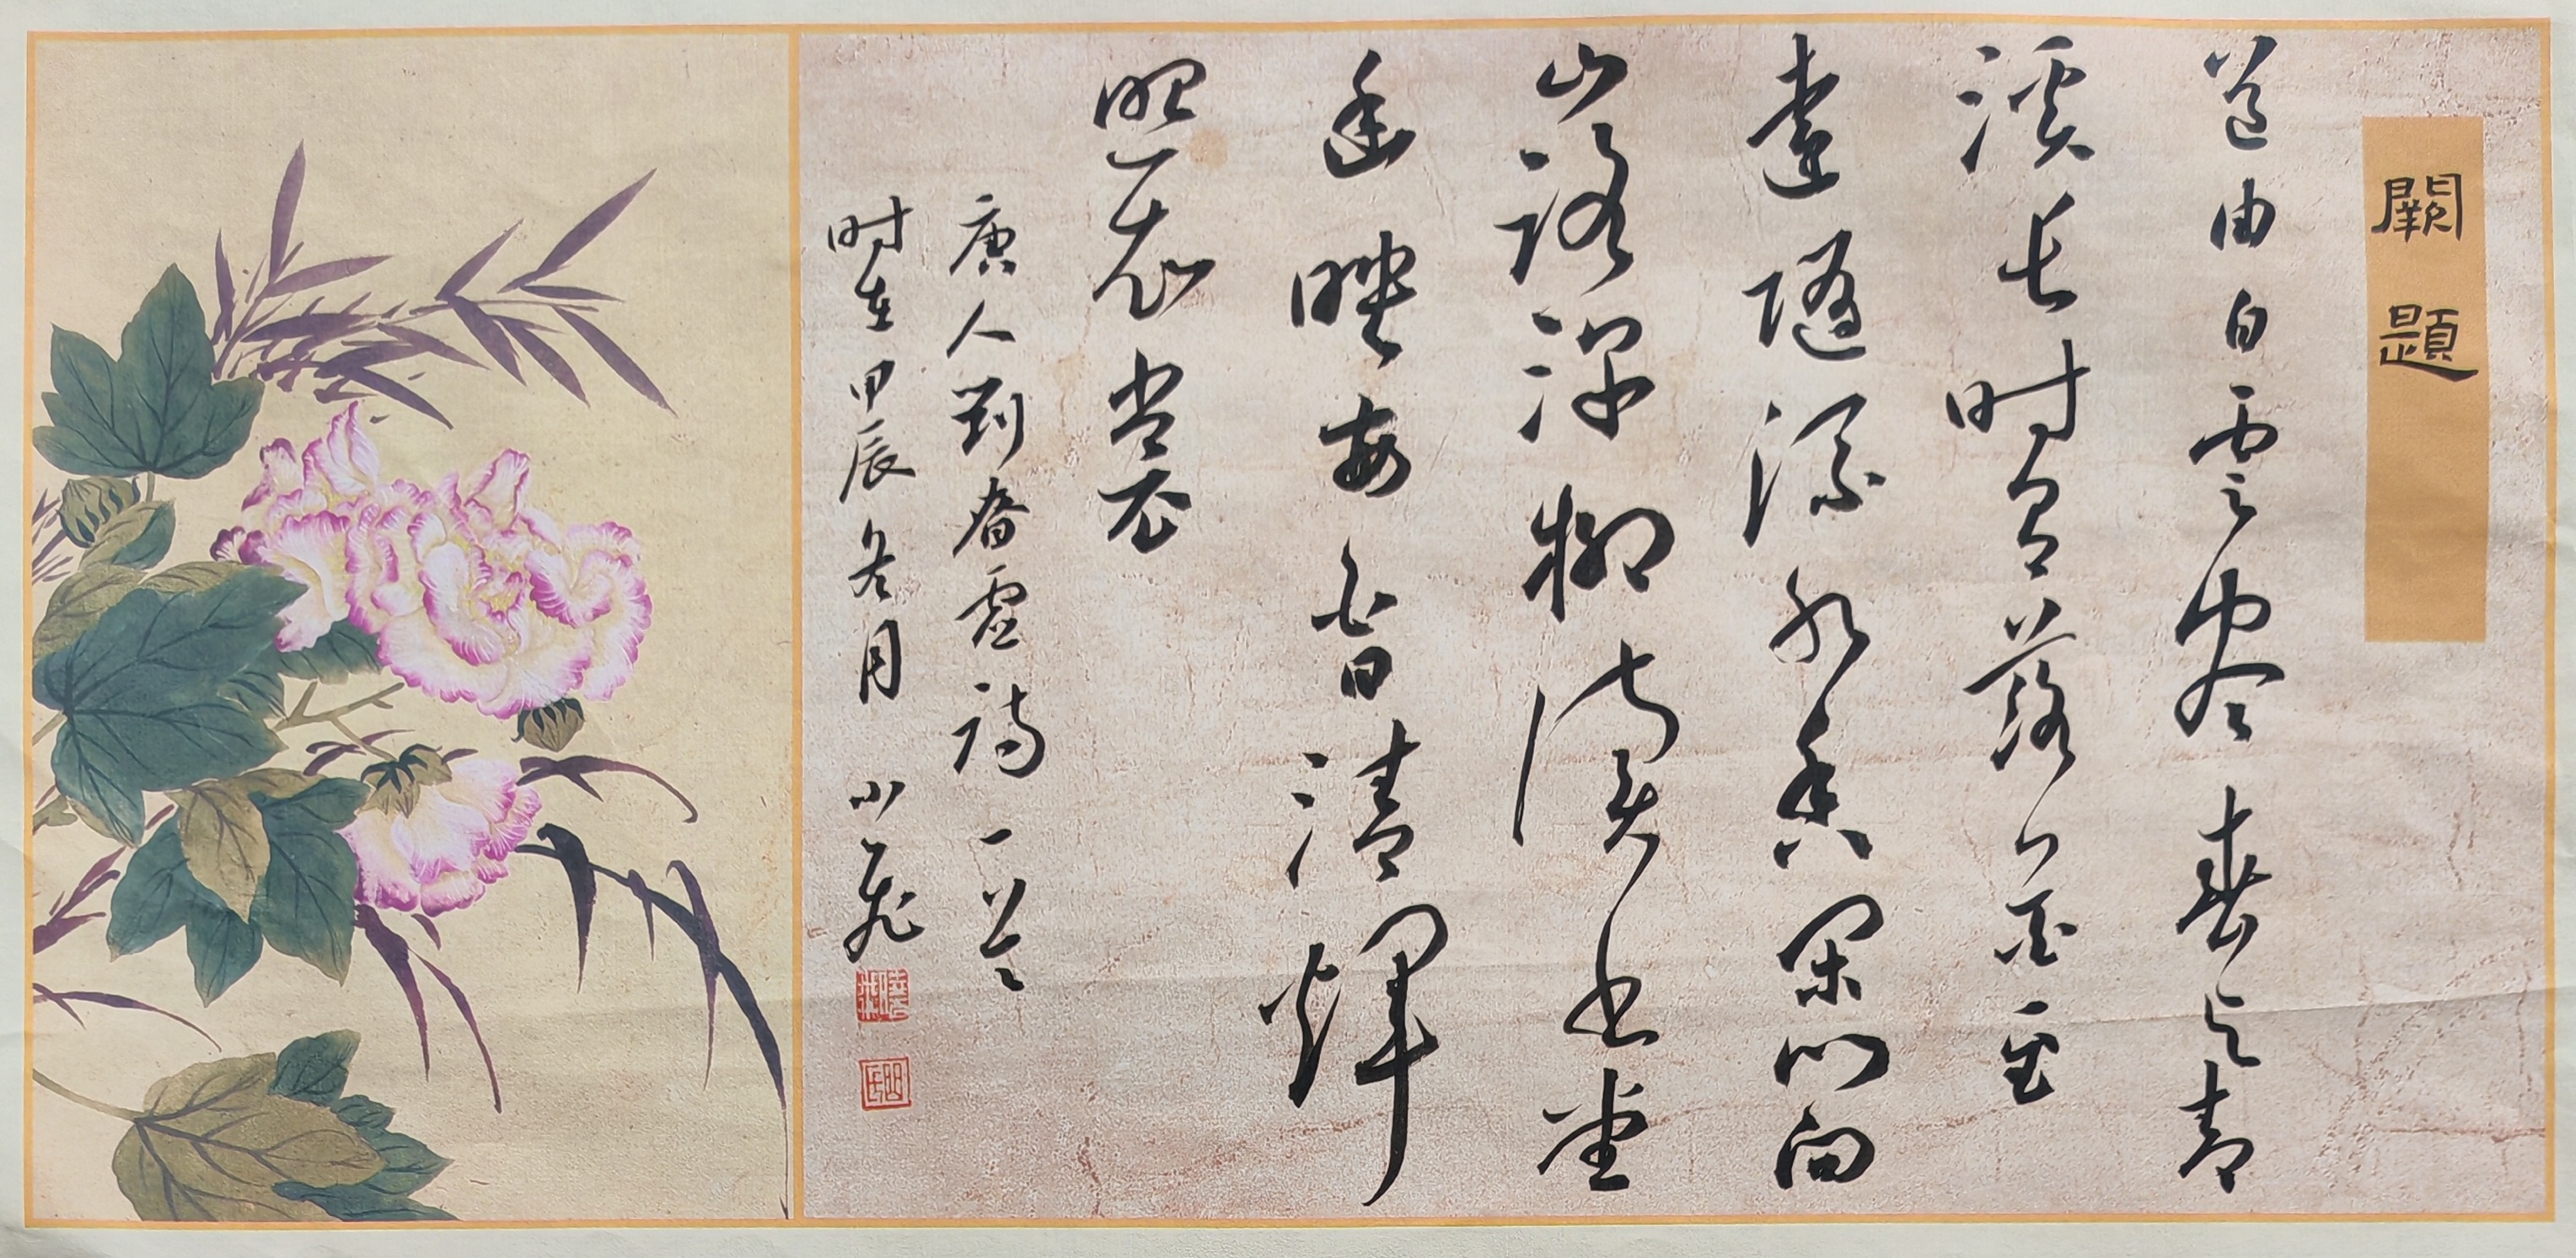 闕題
道由白雲尽春与青
溪长时有落花至
遠隨流水香閑门向
山路深柳讀书堂
幽映每白日清輝
照衣裳
唐人劉眘虚詩一首
时在甲辰冬月小飛